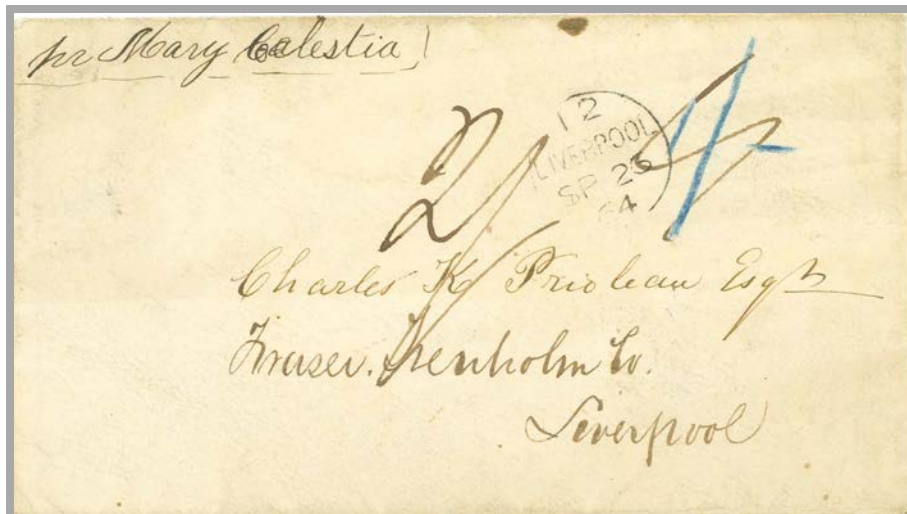 pr Mary Celestia
2/4
12
LIVERPOOL
SP 25
64
Charles K Prioleau Esqr
Fraser. Trenholm Co.
Liverpool